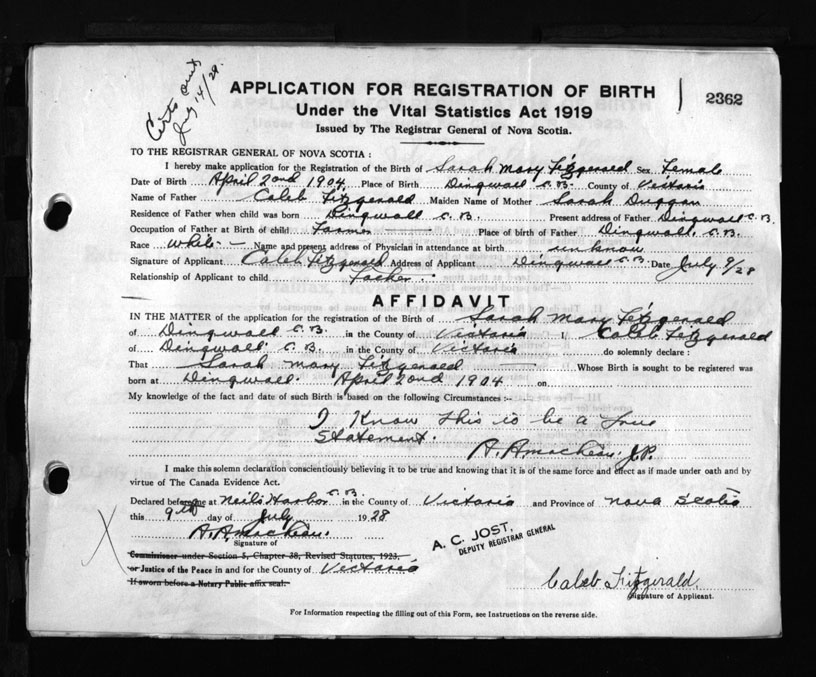 Certs out
July 14/28
APPLICATION FOR REGISTRATION OF BIRTH
2362
Under the Vital Statistics Act 1919
Issued by The Registrar General of Nova Scotia.
TO THE REGISTRAR GENERAL OF NOVA SCOTIA :
I hereby make application for the Registration of the Birth of Sarah Mary Fitzgerald Sex Female
Date of Birth April 2ond 1904. Place of Birth Dingwall C.B. County of Victoria
Name of Father Caleb Fitzgerald Maiden Name of Mother Sarah Duggan
Residence of Father when child was born Dingwall C.B. Present address of Father Dingwall C.B.
Occupation of Father at Birth of child. Farmer Place of birth of Father Dingwall. C.B.
Race White - Name and present address of Physician in attendance at birth unknow
Signature of Applicant Caleb Fitzgerald Address of Applicant Dingwall C.B. Date July 9/28
Relationship of Applicant to child Father
AFFIDAVIT
IN THE MATTER of the application for the registration of the Birth of Sarah Mary Fitzgerald
of Dingwall C.B. in the County of Victoria I, Caleb Fitzgerald
of Dingwall C.B. in the County of Victoria do solemnly declare :
That Sarah Mary Fitzgerald Whose Birth is sought to be registered was
born at Dingwall. April 2ond 1904. on
My knowledge of the fact and date of such Birth is based on the following Circumstances :-
I Know this to be a true
Statement.
J.P.
I make this solemn declaration conscientiously believing it to be true and knowing that it is of the same force and effect as if made under oath and by
virtue of The Canada Evidence Act.
Declared before me at Neils Harbor C.B. in the County of Victoria and Province of Nova Scotia
this 9th day of July 1928
Signature of
A. C. JOST,
DEPUTY REGISTRAR GENERAL
Commissioner under Section 5, Chapter 38, Revised Statutes, 1923.
or Justice of the Peace in and for the County of Victoria
If sworn before a Notary Public affix seal.
Caleb Fitzgerald.
Signature of Applicant.
For Information respecting the filling out of this Form, see Instructions on the reverse side.